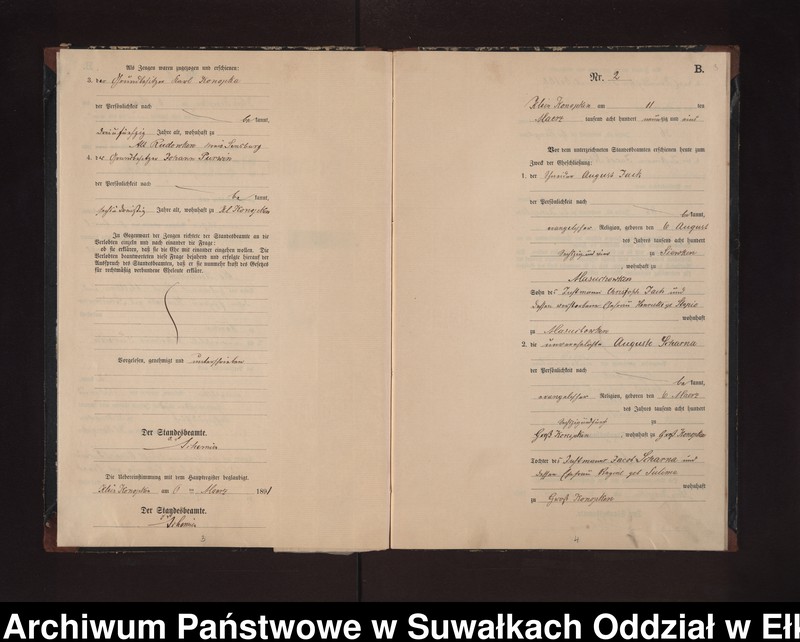 Als Zeugen waren zugezogen und erschienen:
3. der Grundbesitzer Karl Konopka
der Persönlichkeit nach
be kannt,
Jahre alt, wohnhaft zu
Alt Rudowken Kreis Sensburg
4. der Grundbesitzer Johann
der Persönlichkeit nach
be kannt,
Jahre alt, wohnhaft zu Kl Konopken
In Gegenwart der Zeugen richtete der Standesbeamte an die
Verlobten einzeln und nach einander die Frage:
ob sie erklären, daß sie die Ehe mit einander eingehen wollen. Die
Verlobten beantworteten diese Frage bejahend und erfolgte hierauf der
Ausspruch des Standesbeamten, daß er sie nunmehr kraft des Gesetzes
für rechtmäßig verbundene Eheleute erkläre.
Vorgelesen, genehmigt und unterschrieben
Der Standesbeamte.
Die Uebereinstimmung mit dem Hauptregister beglaubigt.
Klein Konopken am ten Maerz 1891
Der Standesbeamte.
3
B.
Nr. 2
Klein Konopken am 11 ten
Maerz tausend acht hundert neunzig und eins
Vor dem unterzeichneten Standesbeamten erschienen heute zum
Zweck der Eheschließung:
1. der Schneider August Jach
der Persönlichkeit nach
be kannt,
evangelischer Religion, geboren den 6 August
des Jahres tausend acht hundert
sechszig und vier zu
, wohnhaft zu
Masuchowken
Sohn des Instmann Christoph Jach und
dessen verstorbenen Ehefrau
wohnhaft
zu Masuchowken
2. die unverehelichte Auguste Scharna
der Persönlichkeit nach
be kannt,
evangelischer Religion, geboren den 6 Maerz
des Jahres tausend acht hundert
sechszig und fünf zu
Groß Konopken , wohnhaft zu Groß Konopken
Tochter des Instmann Jacob Scharna und
dessen Ehefrau Regine geb
wohnhaft
zu Gross Konopken
4
Archiwum Państwowe w Suwałkach Oddział w Eł